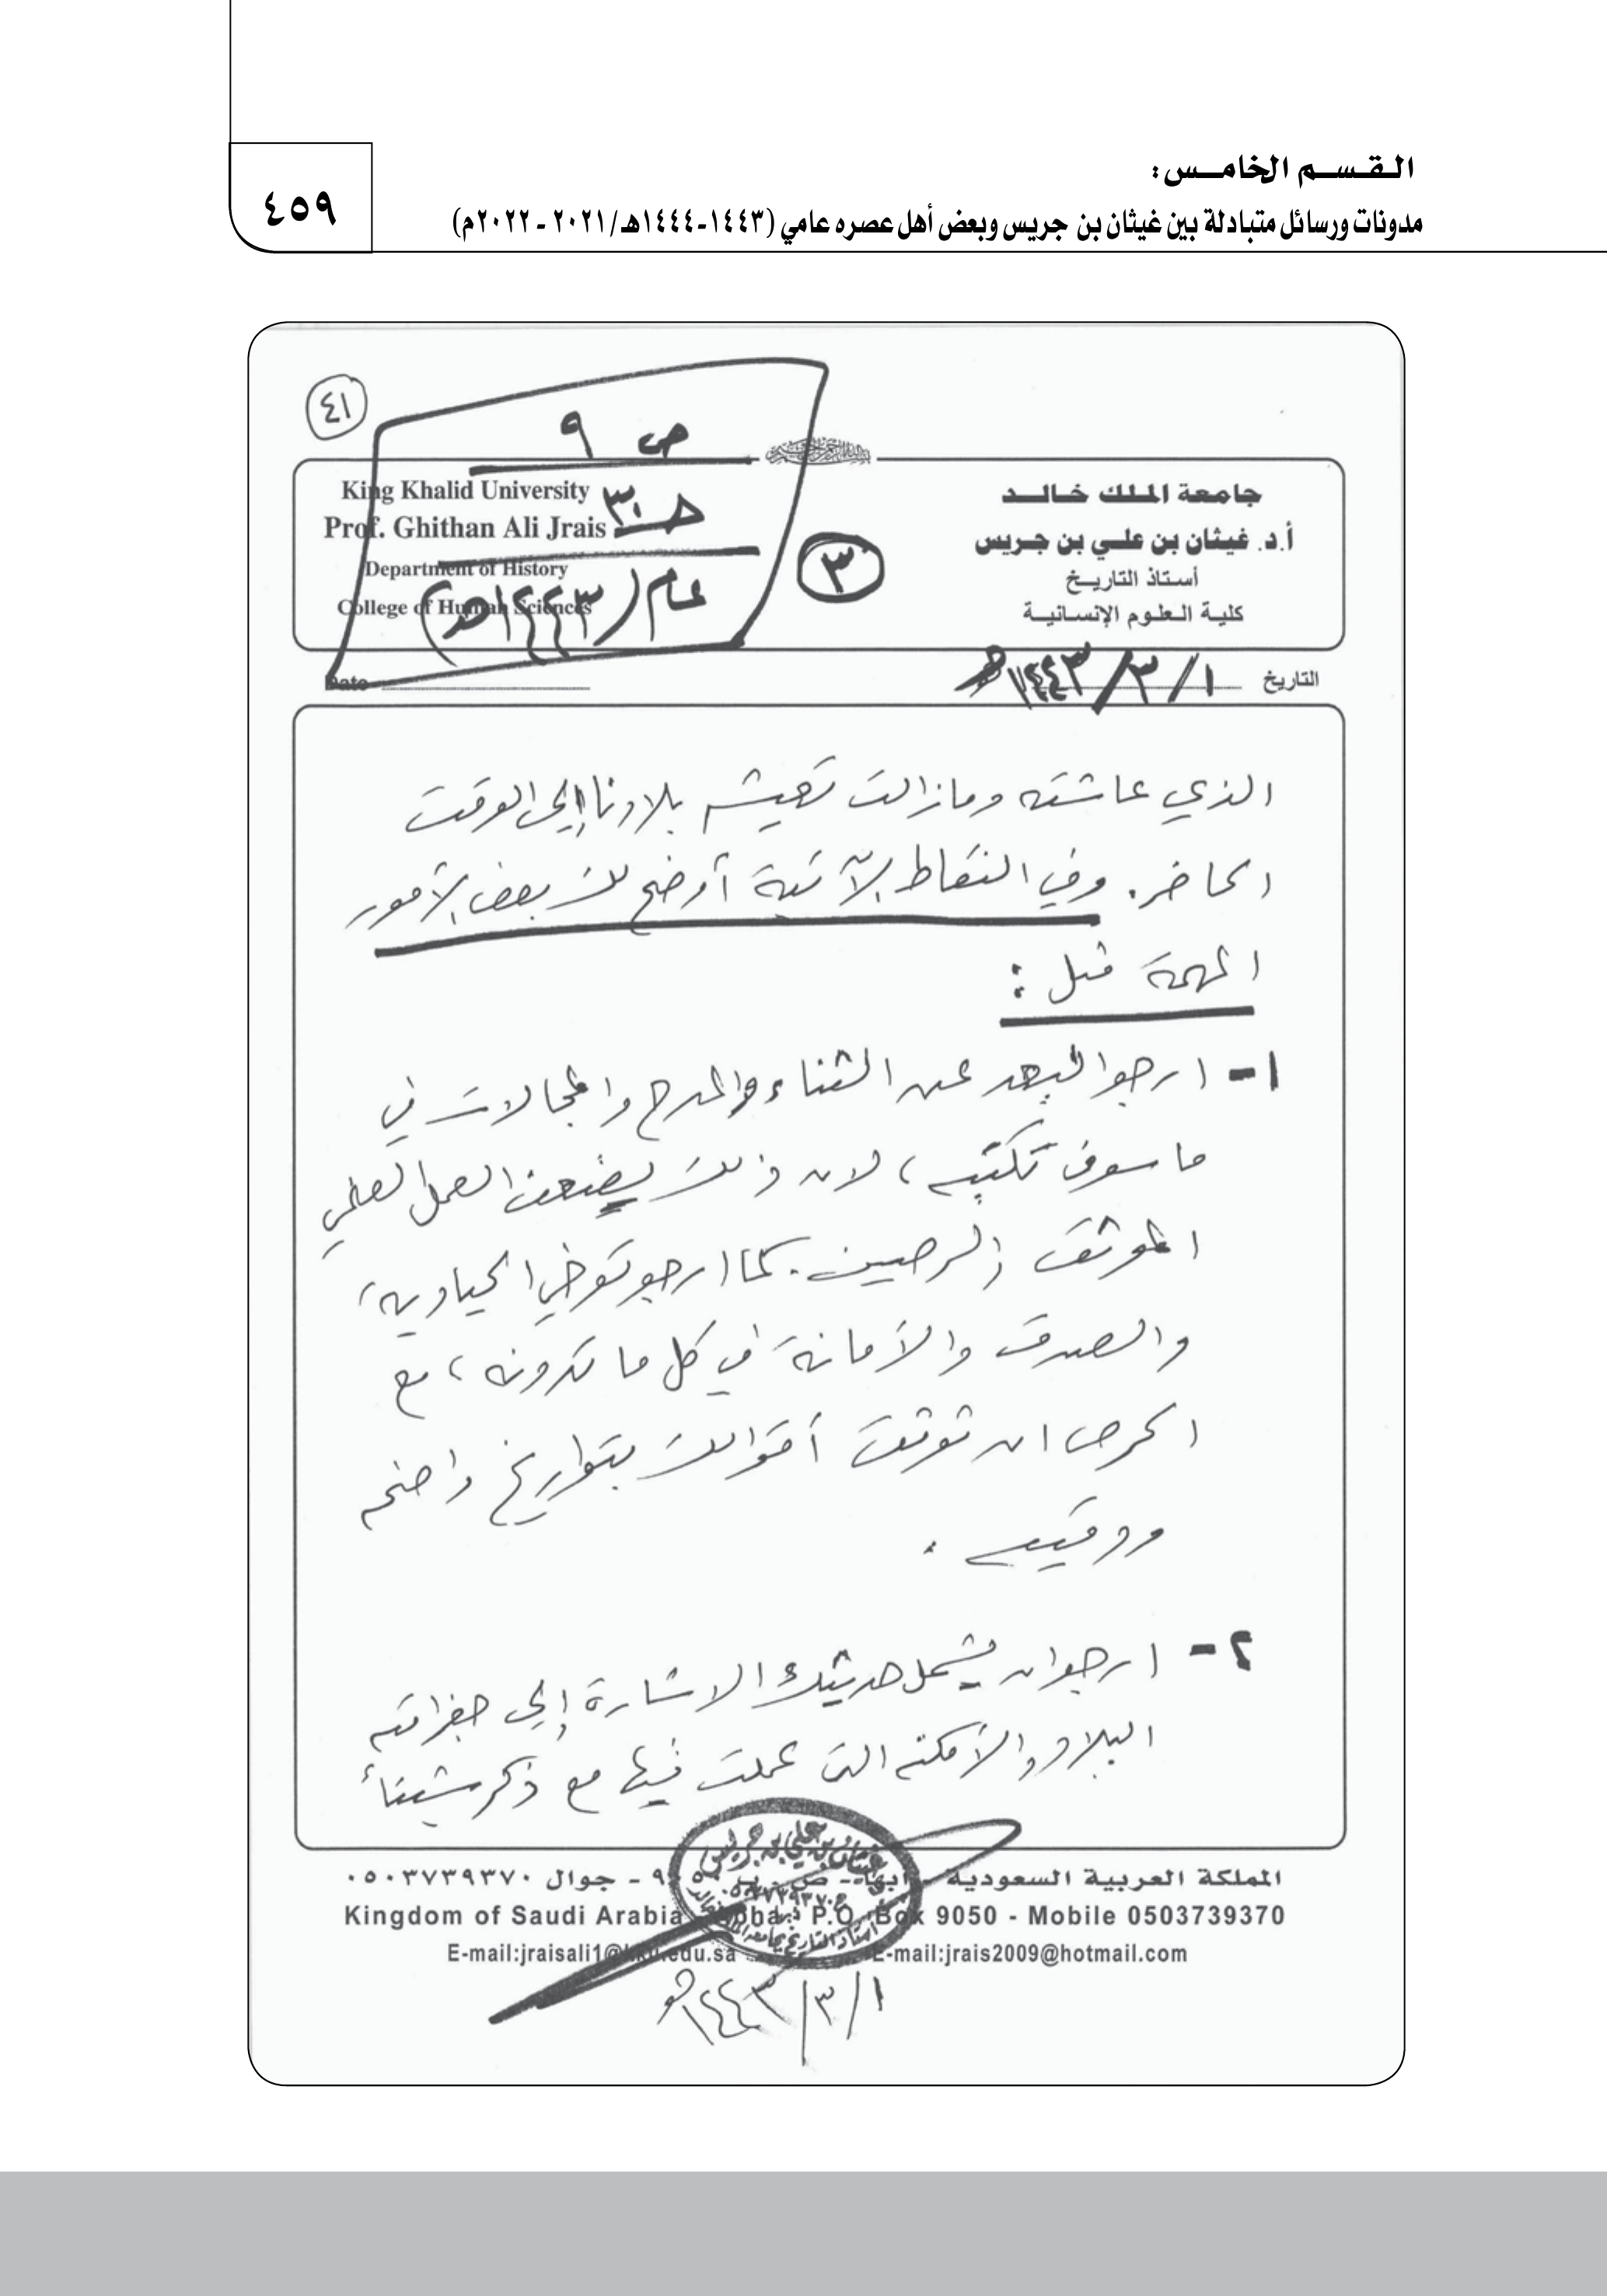 القسم الخامس:
مدونات ورسائل متبادلة بين غيثان بن جريس وبعض أهل عصره عامي (١٤٤٣-١٤٤٤هـ/٢٠٢١ - ٢٠٢٢م)
٤٥٩
٤١
ص ٩
هـ ٣٠
عام (١٤٤٣هـ)
٣
جامعة الملك خالد
أ.د. غيثان بن علي بن جريس
أستاذ التاريخ
كلية العلوم الإنسانية
King Khalid University
Prof. Ghithan Ali Jrais
Department of History
College of Human Sciences
التاريخ ١/٣/١٤٤٣هـ
Date
الذي عاشته وما زالت تعيشه بلادنا إلى الوقت
الحاضر. وفي النقاط الآتية أوضح لك بعض الأمور
المهمة مثل :
١- ارجوا البعد عن الثناء والمدح والمجالات في
ما سوف تكتبه، لان ذلك يضعف العمل العلمي
الموثق الرصين. كما ارجو توخي الحيادية،
والصدق والأمانة في كل ما تدونه، مع
الحرص ان توثق أقوالك بتواريخ واضحه
ودقيقه .
٢- ارجوا ان يشمل حديثك الاشارة إلى جغرافيه
البلاد والأمكنه التي عملت فيها مع ذكر شيئاً
المملكة العربية السعودية - أبها - ص . ب ٩٠٥٠ - جوال ٠٥٠٣٧٣٩٣٧٠
Kingdom of Saudi Arabia - Abha - P.O. Box 9050 - Mobile 0503739370
E-mail:jraisali1@kku.edu.sa E-mail:jrais2009@hotmail.com
١/٣/١٤٤٣هـ